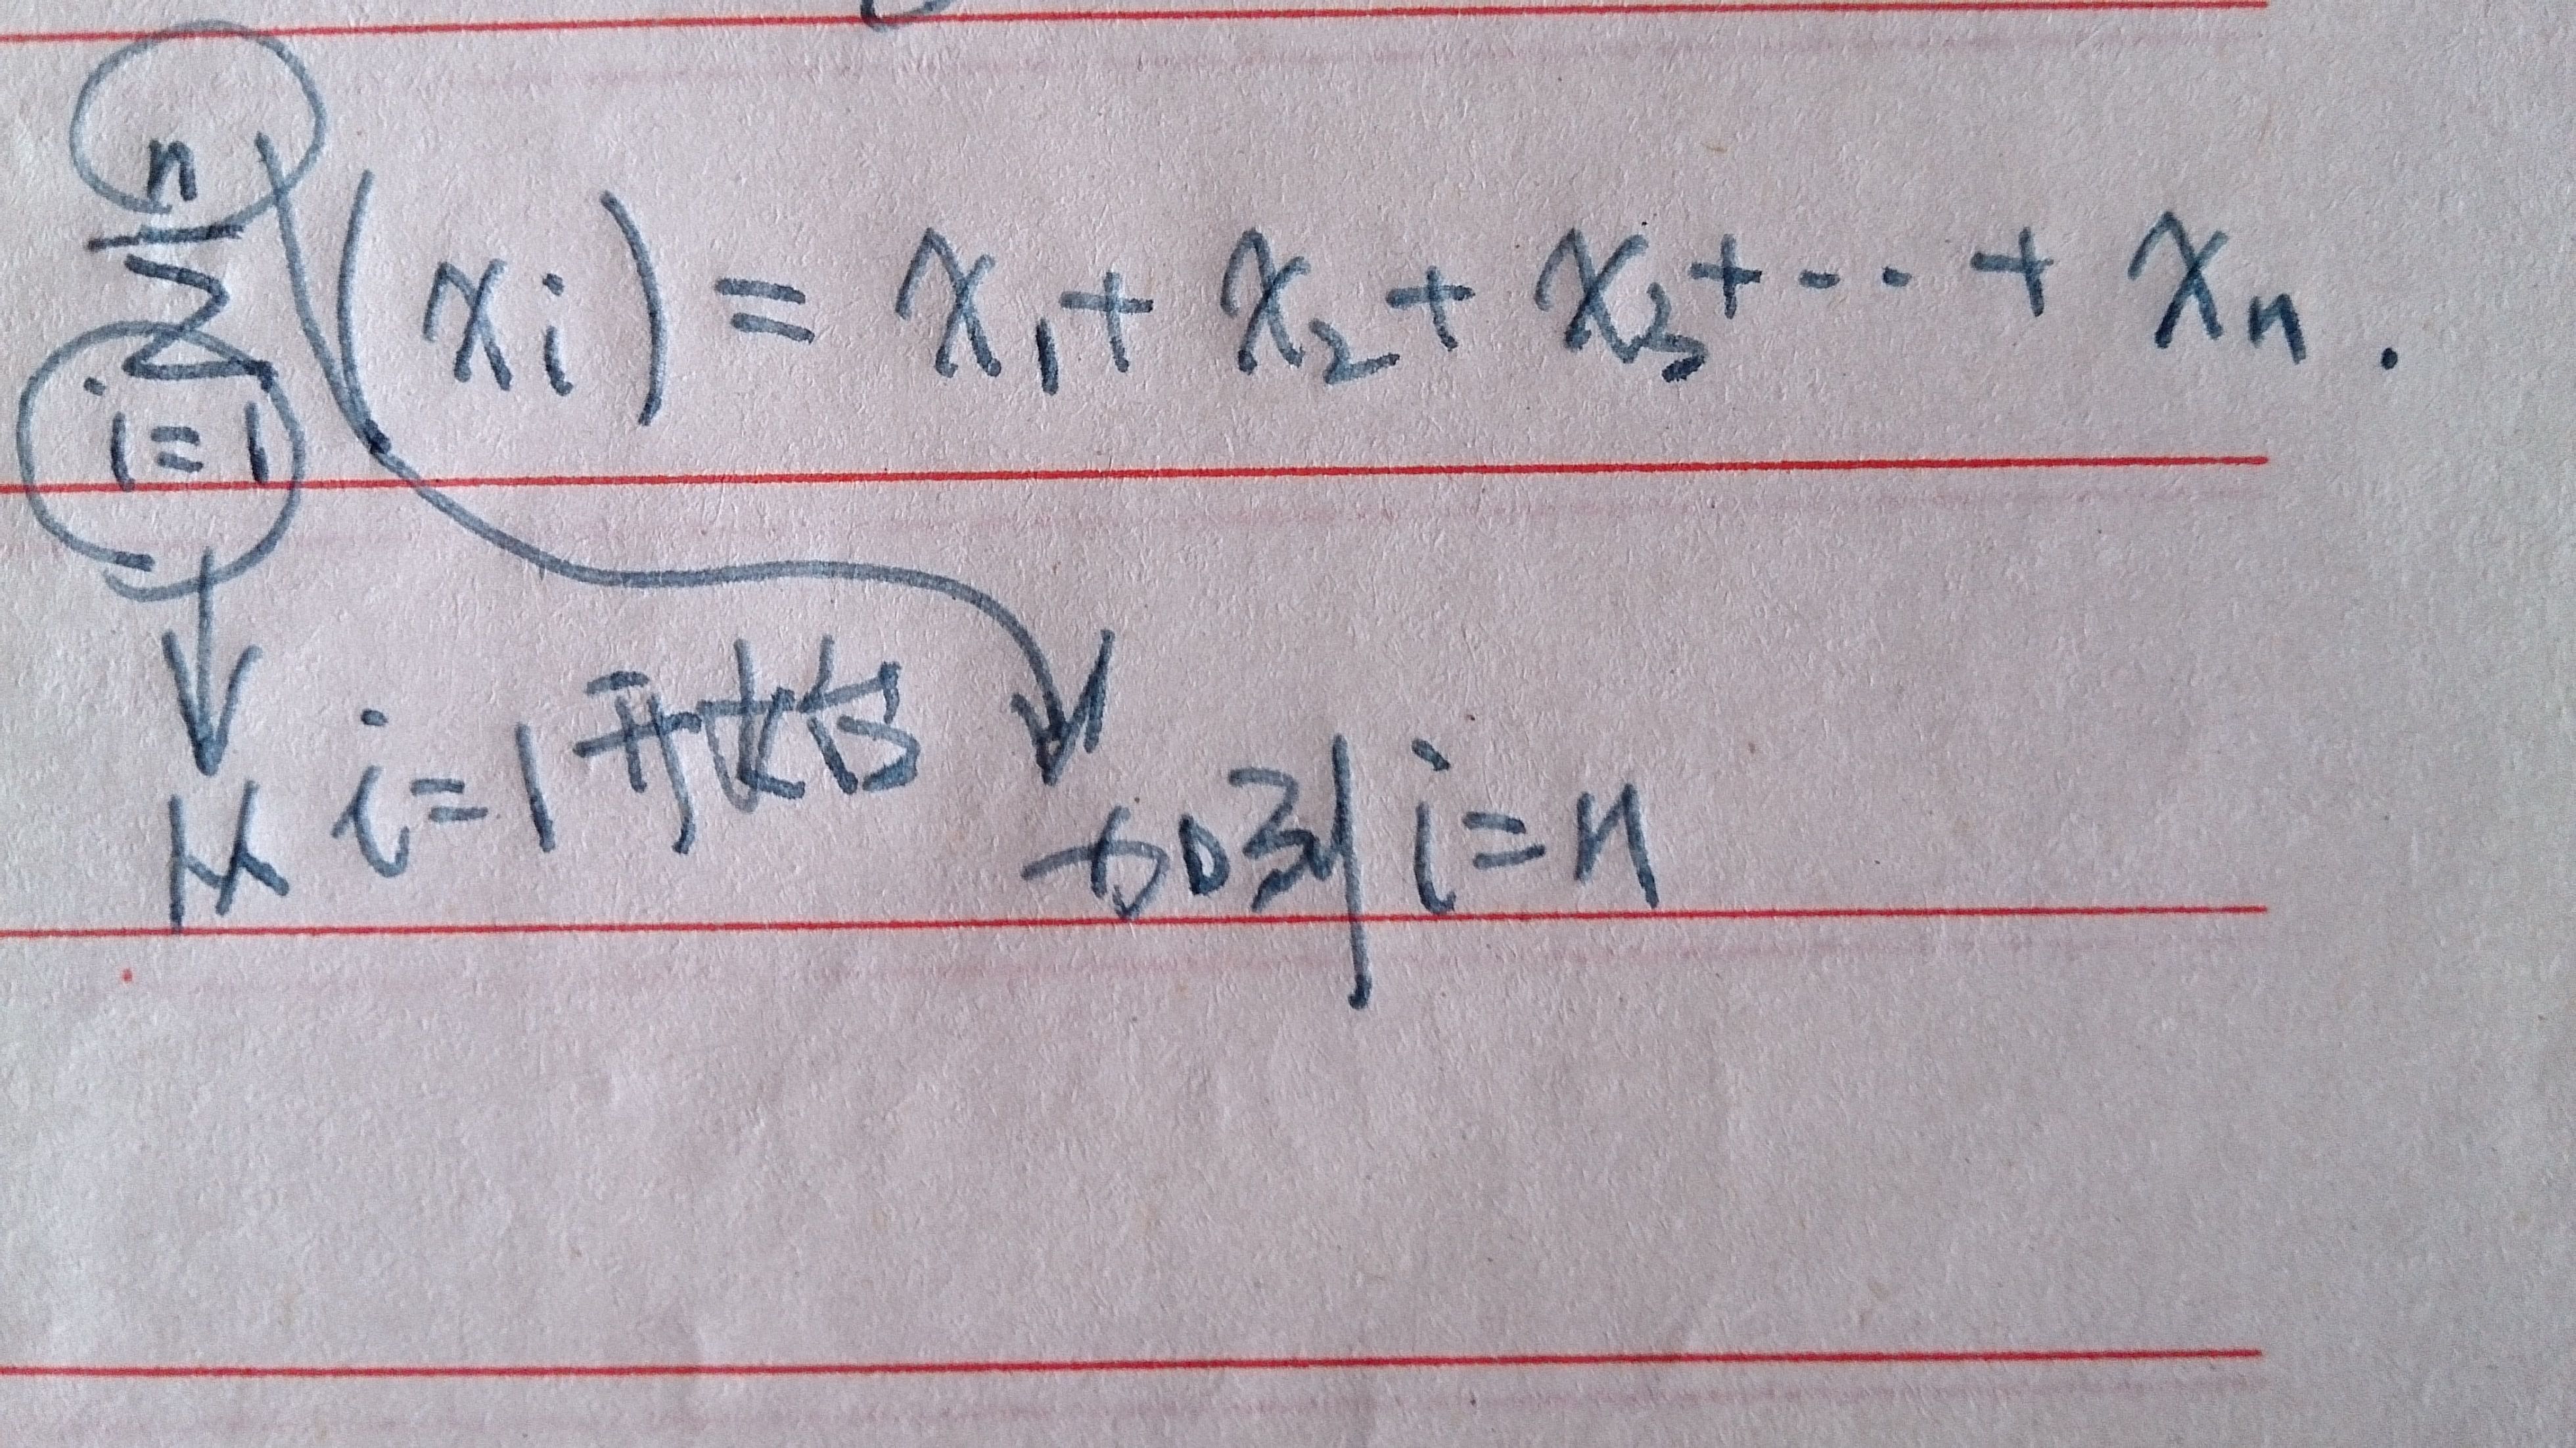 n
∑ (xi) = x₁ + x₂ + x₃ + ··· + xₙ.
i=1
从 i=1 开始 加到 i=n